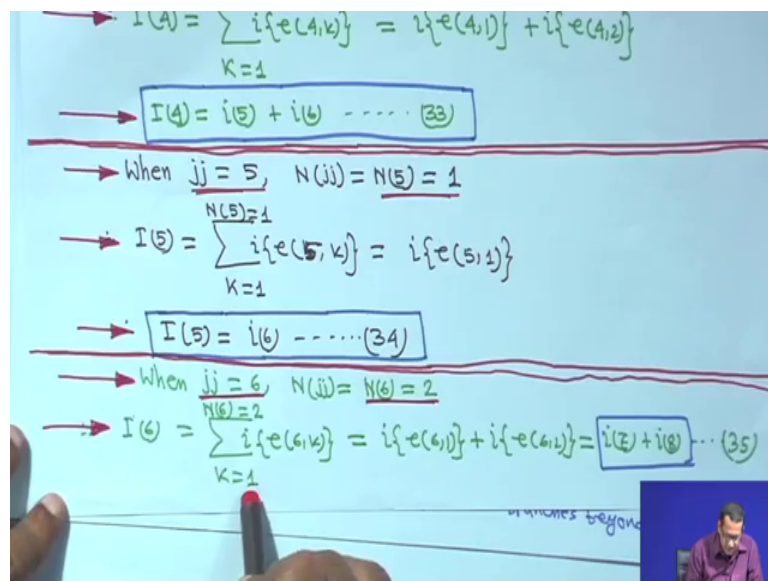 I(4) = ∑ i{e(4,k)} = i{e(4,1)} + i{e(4,2)}
K=1
I(4) = i(5) + i(6) ------ (33)
When jj = 5, N(jj) = N(5) = 1
N(5)=1
I(5) = ∑ i{e(5,k)} = i{e(5,1)}
K=1
I(5) = i(6) ------ (34)
When jj = 6, N(jj) = N(6) = 2
N(6)=2
I(6) = ∑ i{e(6,k)} = i{e(6,1)} + i{e(6,2)} = i(7) + i(8) --- (35)
K=1
branches beyond